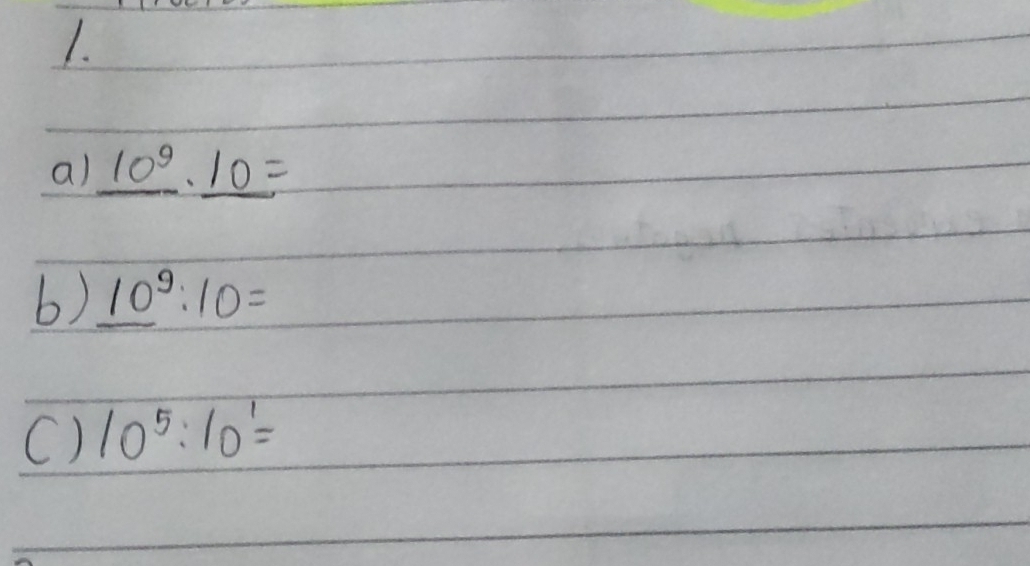 1.
a) 10⁹ . 10 =
b) 10⁹ : 10 =
C) 10⁵ : 10¹ =